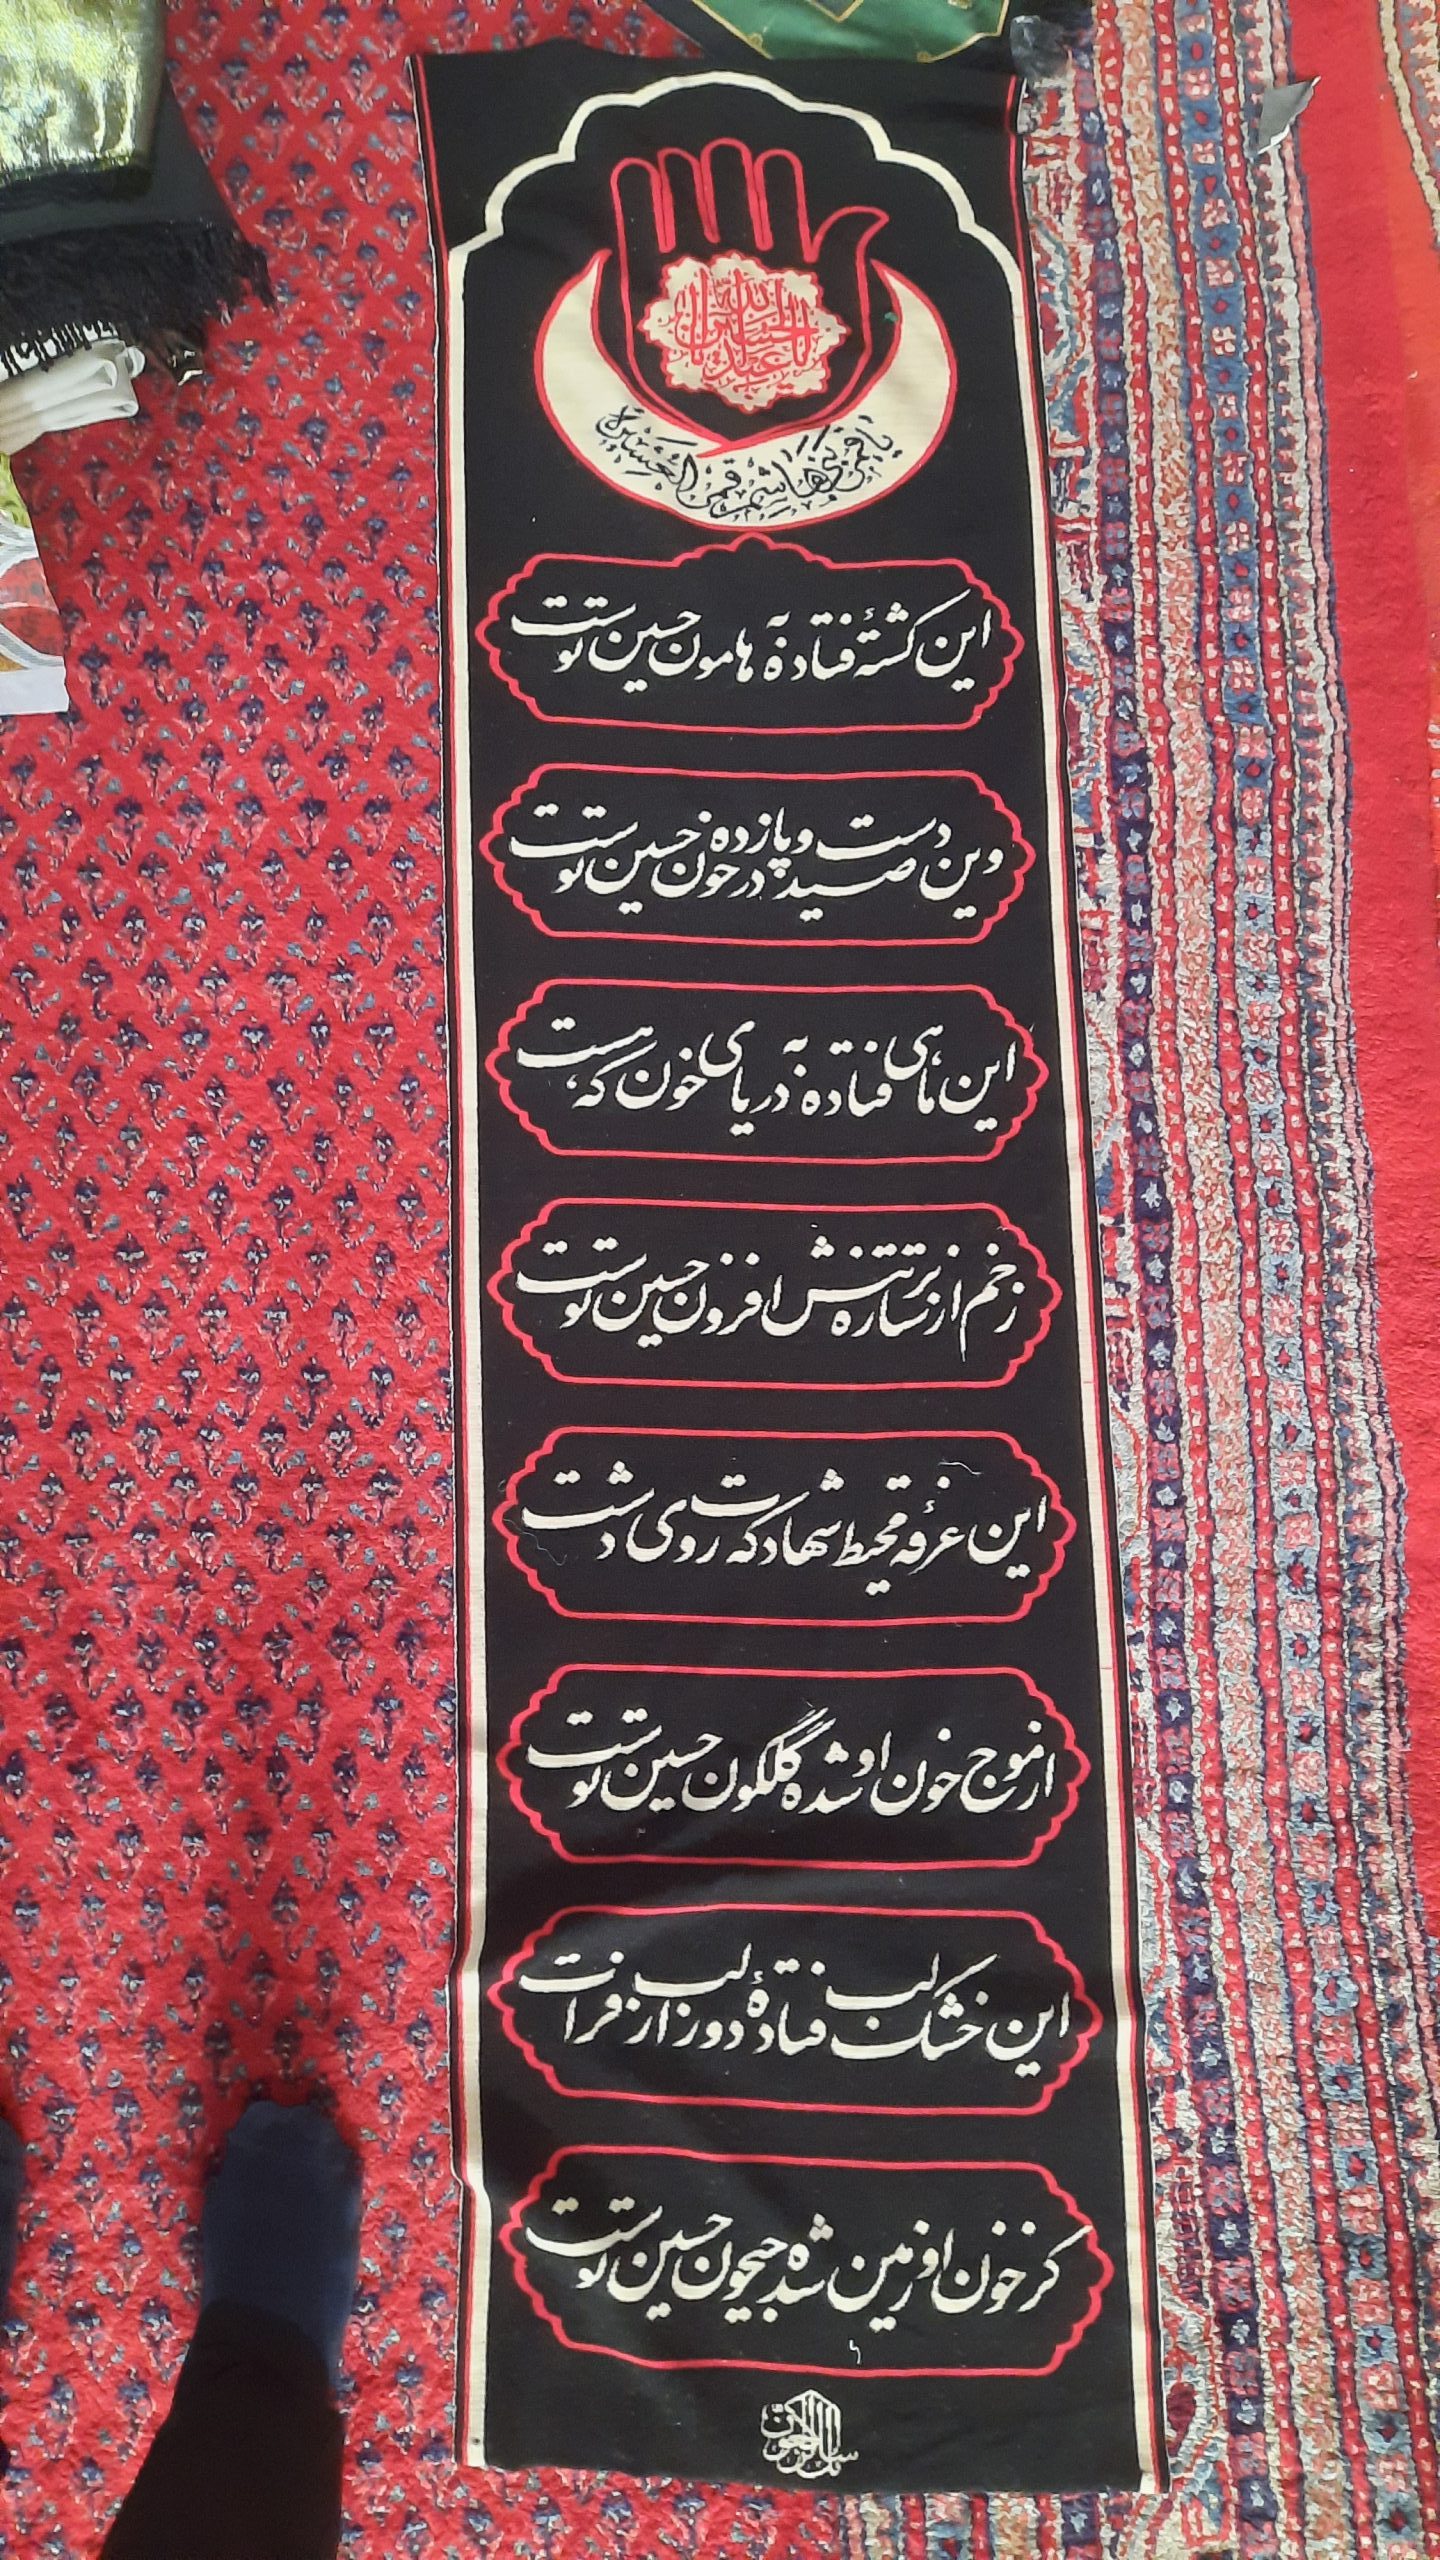 یا اباعبدالله الحسین
یا قمر بنی هاشم قمر العشیره
این کشتهٔ فتاده به هامون حسین توست
وین صید دست و پا زده در خون حسین توست
این ماهی فتاده به دریای خون که هست
زخم از ستاره بر تنش افزون حسین توست
این غرقهٔ محیط شهادت که روی دشت
از موج خون او شده گلگون حسین توست
این خشک لب فتادهٔ دور از لب فرات
کز خون او زمین شده جیحون حسین توست